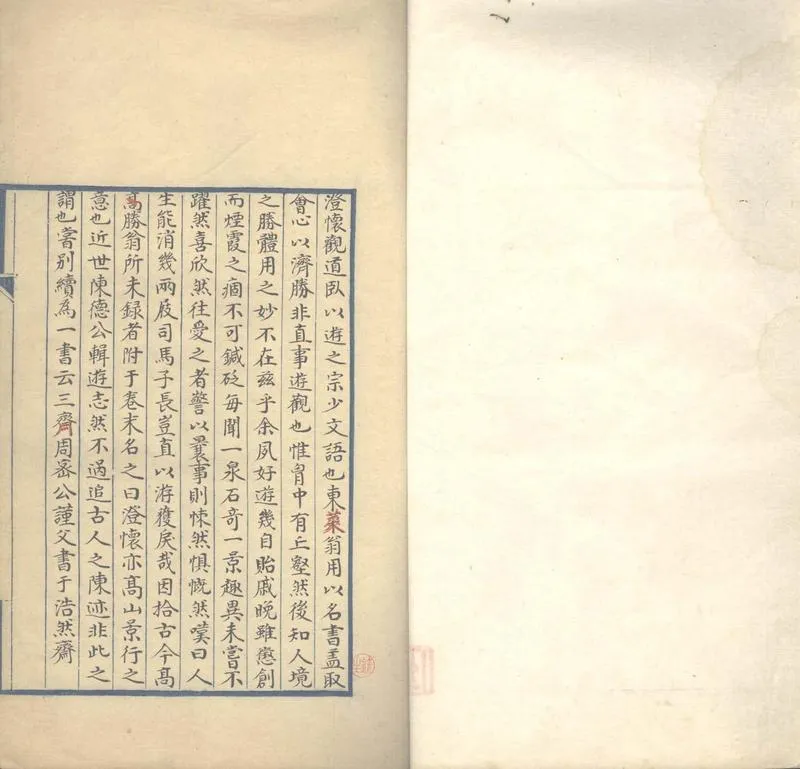 澄懷觀道臥以遊之宗少文語也東萊翁用以名書盖取
會心以濟勝非直事遊觀也惟胷中有丘壑然後知人境
之勝體用之妙不在兹乎余夙好遊幾自貽戚晚雖懲創
而煙霞之痼不可鍼砭每聞一泉石奇一景趣異未嘗不
躍然喜欣然往愛之者警以曩事則悚然惧慨然嘆曰人
生能消幾兩屐司馬子長豈直以游獲戾哉因拾古今高
勝翁所未録者附于卷末名之曰澄懷亦髙山景行之
意也近世陳德公輯遊志然不過追古人之陳迹非此之
謂也嘗别續為一書云三齊周宻公謹父書于浩然齋